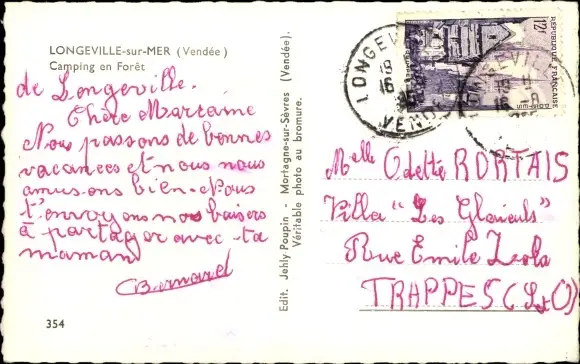 LONGEVILLE-sur-MER (Vendée)
Camping en Forêt
de Longeville.
Chère Marraine
Nous passons de bonnes
vacances et nous nous
amusons bien. Nous
t'envoyons nos baisers
à partager avec ta
maman
Bernard
354
Edit. Jehly Poupin - Mortagne-sur-Sèvres (Vendée).
Véritable photo au bromure.
12f
RÉPUBLIQUE FRANÇAISE
LONGEVILLE
18
16
VENDÉE
Melle Odette RORTAIS
Villa "Les Glaïeuls"
Rue Emile Zola
TRAPPES (S&O)